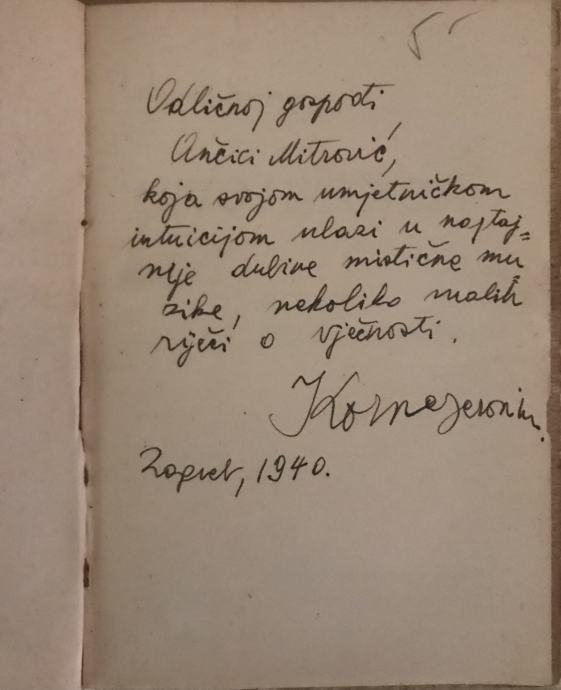 Odličnoj gospođi
Ančici Mitrović,
koja svojom umjetničkom
intuicijom ulazi u najtaj=
nije dubine mistične mu=
zike, nekoliko malih
riječi o vječnosti.
Zagreb, 1940.